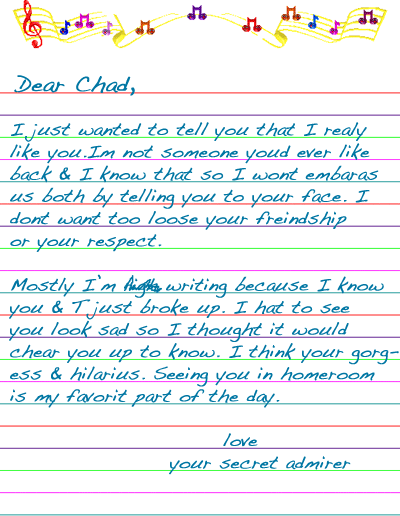 Dear Chad,
I just wanted to tell you that I realy
like you.Im not someone youd ever like
back & I know that so I wont embaras
us both by telling you to your face. I
dont want too loose your freindship
or your respect.
Mostly I'm writing because I know
you & T just broke up. I hat to see
you look sad so I thought it would
chear you up to know. I think your gorg-
ess & hilarius. Seeing you in homeroom
is my favorit part of the day.
love
your secret admirer